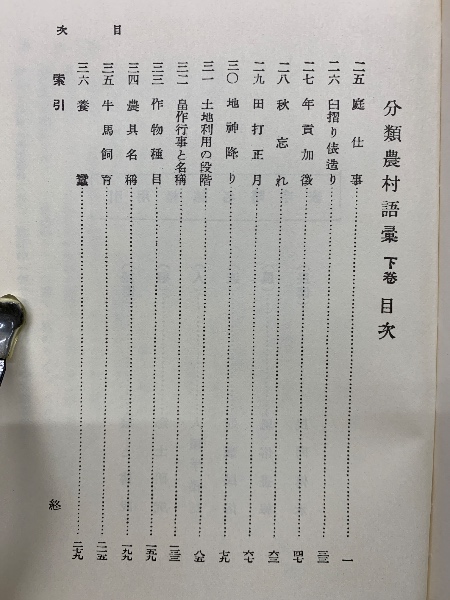 目次
分類農村語彙 下卷 目次
二五 庭仕事……一
二六 臼摺り俵造り……三三
二七 年貢加徴……四七
二八 秋忘れ……六三
二九 田打正月……六七
三〇 地神降り……七九
三一 土地利用の段階……八五
三二 畠作行事と名稱
三三 作物種目……一五九
三四 農具名稱……一九九
三五 牛馬飼育……二一五
三六 養蠶……二七九
索引
終